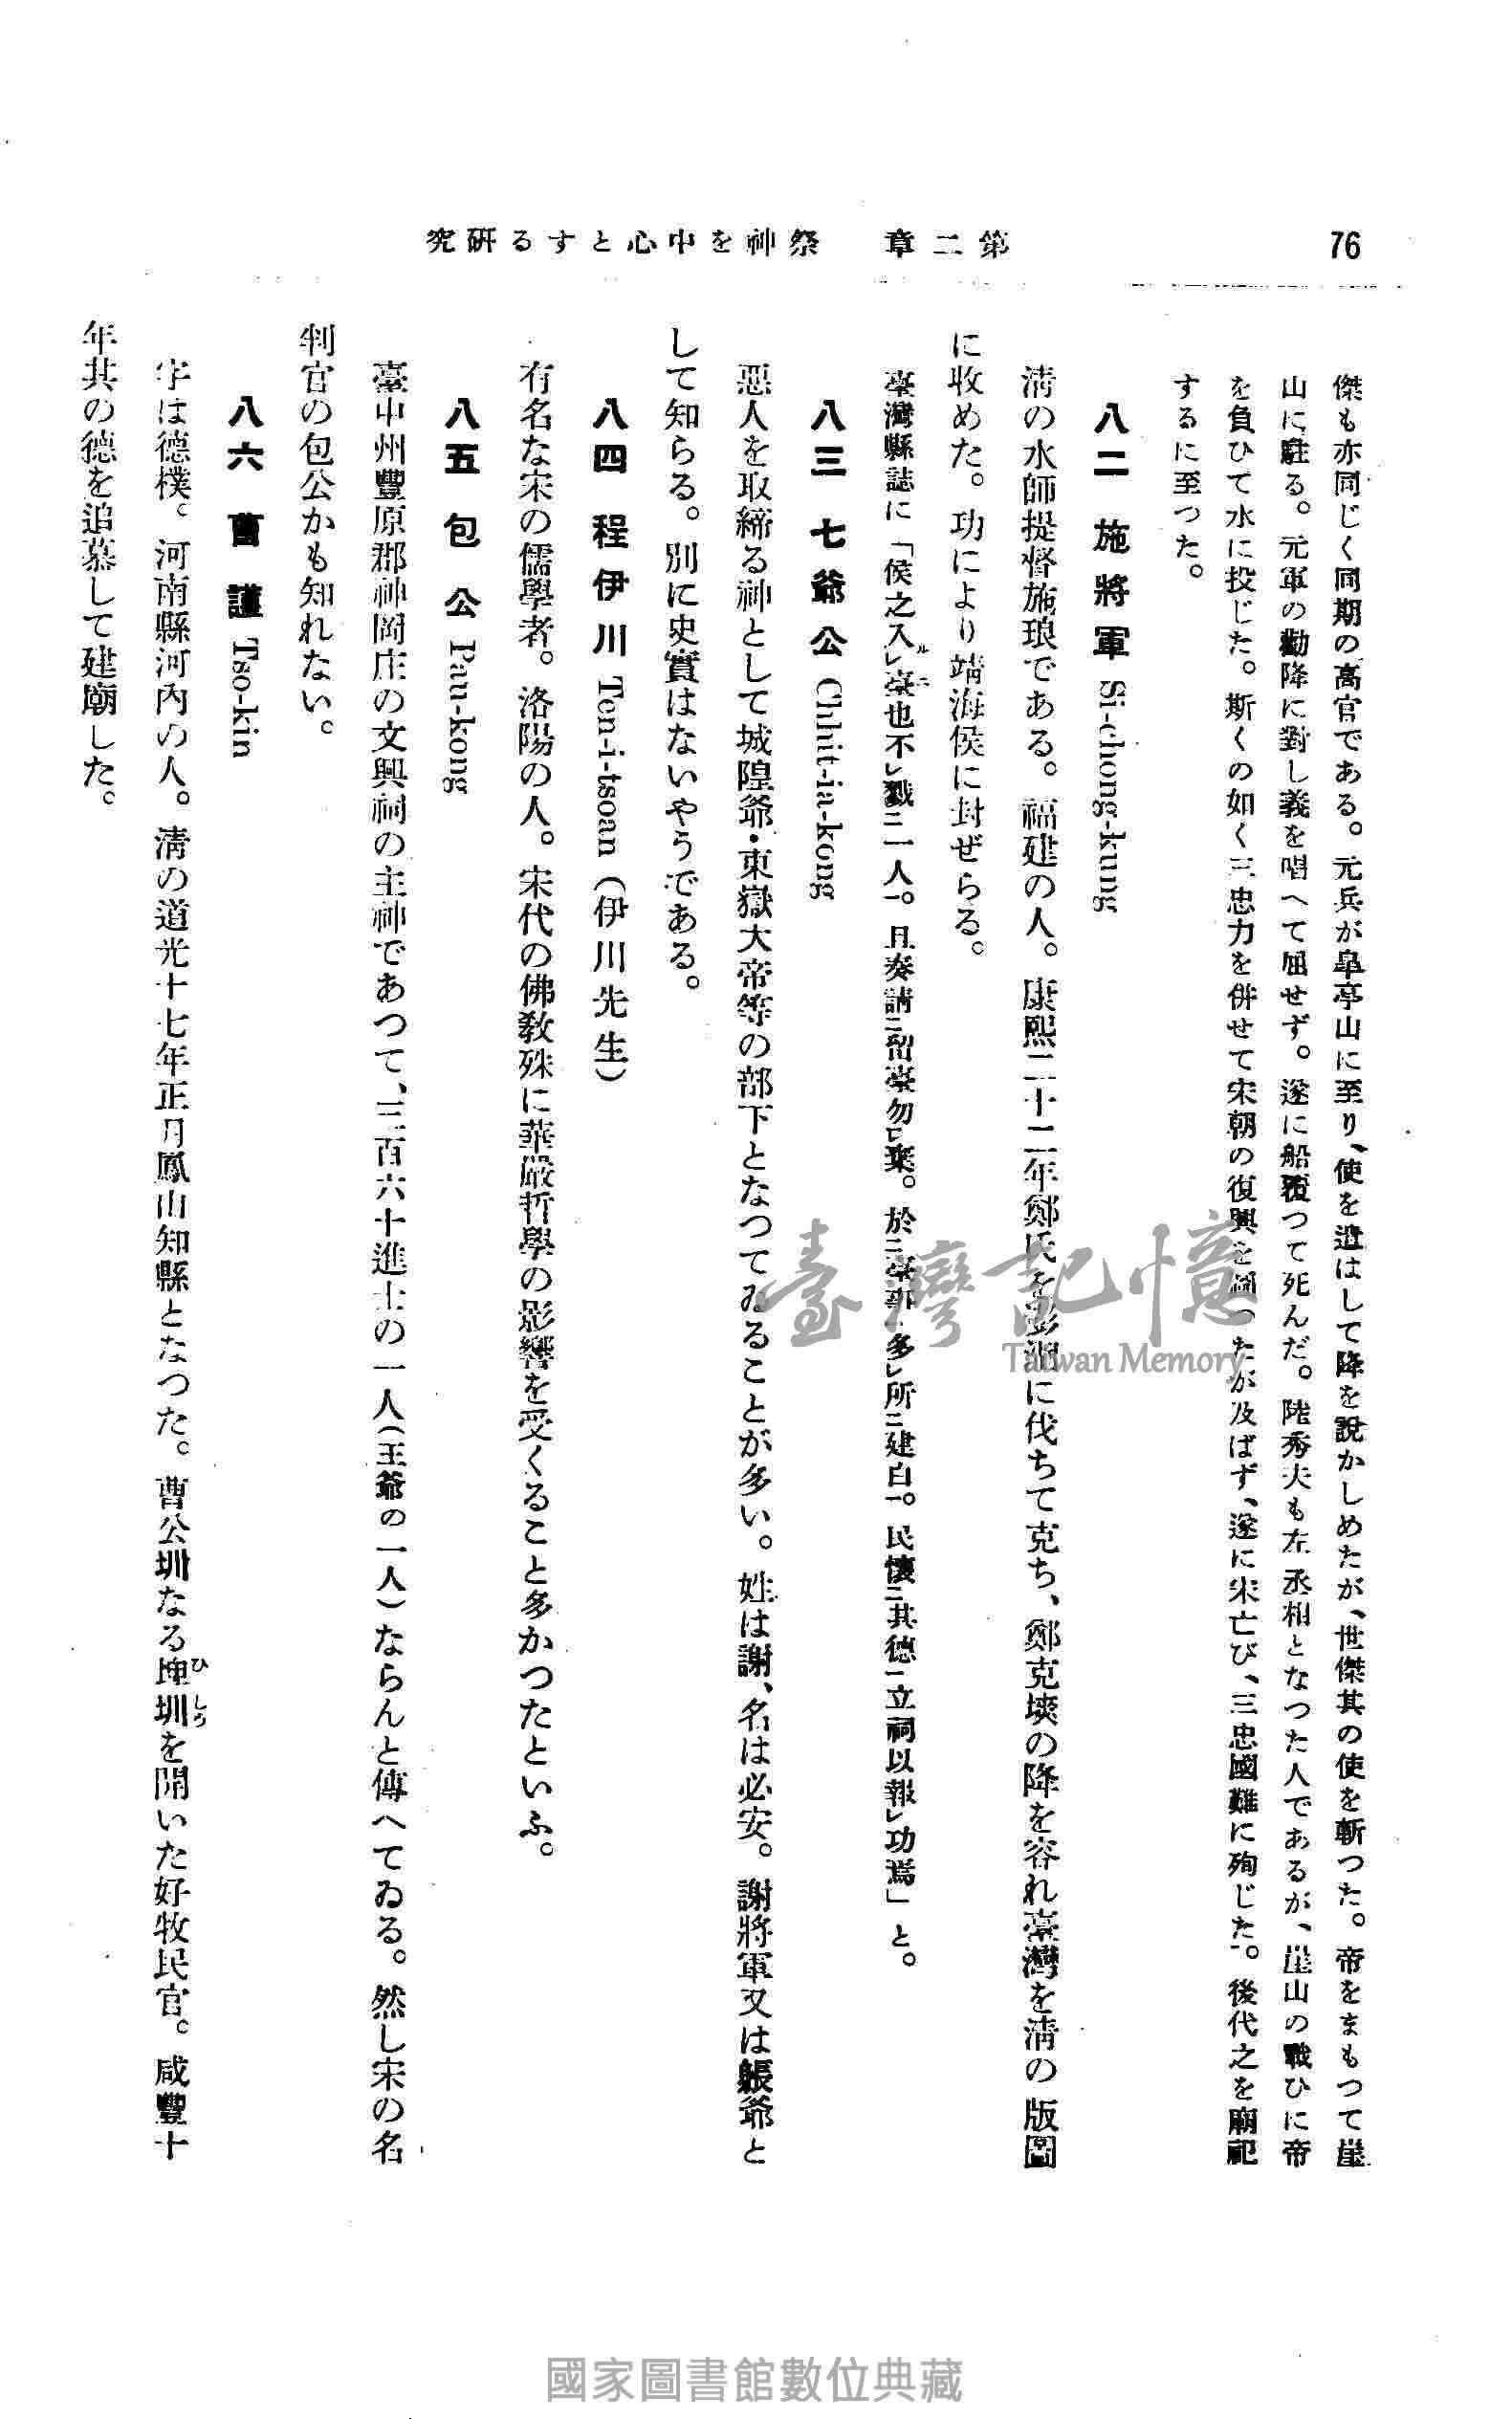 76
第二章 祭神を中心とする研究
傑も亦同じく同期の高官である。元兵が皐亭山に至り、使を遣はして降を說かしめたが、世傑其の使を斬つた。帝をまもつて崖
山に駐る。元軍の勸降に對し義を唱へて屈せず。遂に船覆つて死んだ。陸秀夫も左丞相となつた人であるが、崖山の戰ひに帝
を負ひて水に投じた。斯くの如く三忠力を併せて宋朝の復興を圖つたが及ばず、遂に宋亡び、三忠國難に殉じた。後代之を廟祀
するに至つた。
八二 施將軍 Si-chong-kung
淸の水師提督施琅である。福建の人。康熙二十二年鄭氏を澎湖に伐ちて克ち、鄭克塽の降を容れ臺灣を淸の版圖
に收めた。功により靖海侯に封ぜらる。
臺灣縣誌に「侯之入ルレ臺ニ也不レ戮二一人一。且奏請二留臺勿レ棄。於二臺郡一多レ所二建白一。民懷二其德一立祠以報レ功焉」と。
八三 七爺公 Chhit-ia-kong
惡人を取締る神として城隍爺・東嶽大帝等の部下となつてゐることが多い。姓は謝、名は必安。謝將軍又は躼爺と
して知らる。別に史實はないやうである。
八四 程伊川 Ten-i-tsoan (伊川先生)
有名な宋の儒學者。洛陽の人。宋代の佛敎殊に華嚴哲學の影響を受くること多かつたといふ。
八五 包公 Pau-kong
臺中州豐原郡神岡庄の文興祠の主神であつて、三百六十進士の一人(王爺の一人)ならんと傳へてゐる。然し宋の名
判官の包公かも知れない。
八六 曹謹 Tso-kin
字は德樸。河南縣河內の人。淸の道光十七年正月鳳山知縣となつた。曹公圳なる埤圳ひしうを開いた好牧民官。咸豐十
年其の德を追慕して建廟した。
臺灣記憶
Taiwan Memory
國家圖書館數位典藏